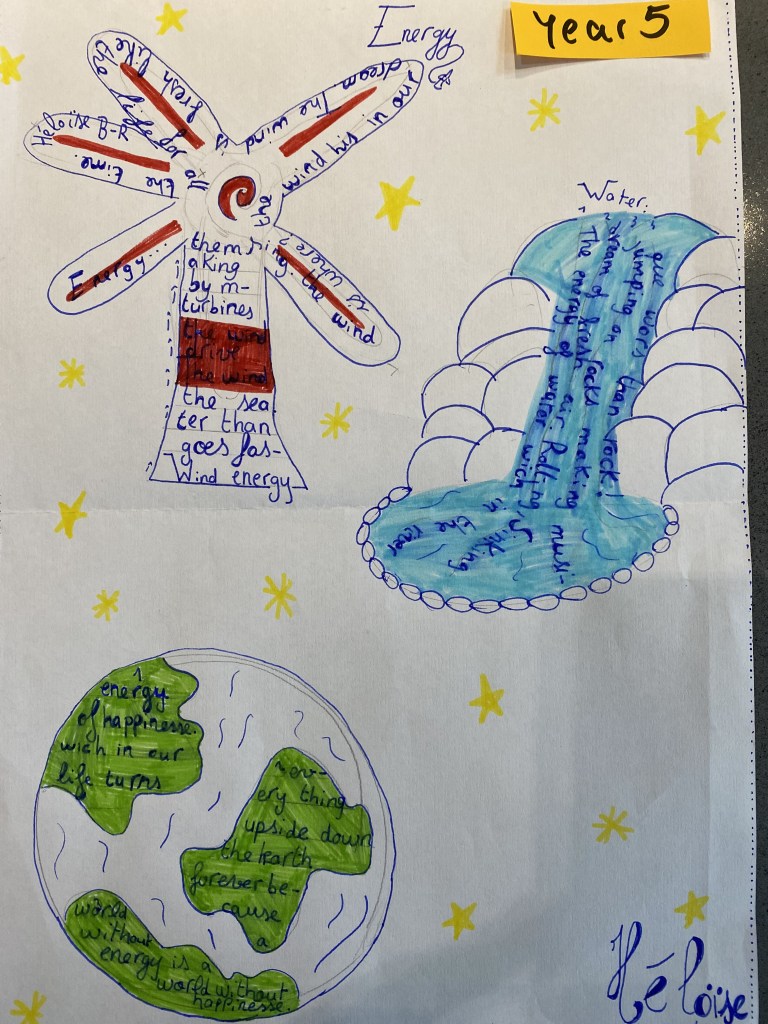 Year 5
Energy
Wind energy
goes fas-
ter than
the sea
the wind
drive
the wind
turbines
by m-
aking
them
ring. the wind
is where?
wind his in our
dream. The wind
is fresh like
the life for
the time.
Héloïse B-R
Energy...
Water.
The energy of water wich
dream of fresh air. Rolling
jumping on rocks making musi-
que wors than rock!
winking
in the river
energy
of happinesse.
wich in our
life turns
ev-
ery thing
upside down
the earth
forever be-
cause
a
world
without
energy is a
world without
happinesse.
Héloïse